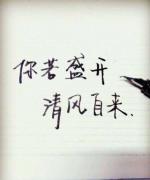 你若盛开
清风自来.